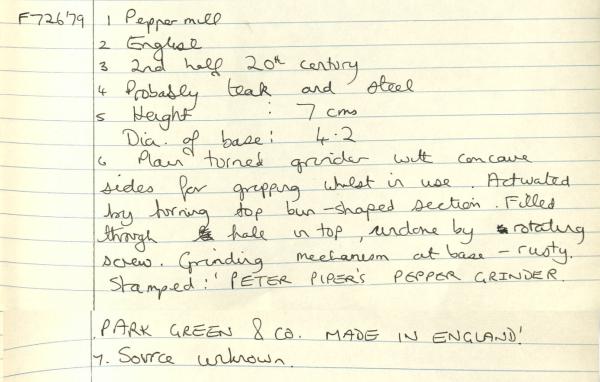 F726'79 1 Pepper mill
2 English
3 2nd half 20th century
4 Probably teak and steel
5 Height : 7 cms
Dia. of base : 4.2
6 Plain turned grinder with concave
sides for gripping whilst in use. Actuated
by turning top bun-shaped section. Filled
through hole in top, undone by rotating
screw. Grinding mechanism at base – rusty.
Stamped : 'PETER PIPER'S PEPPER GRINDER.
PARK GREEN & CO. MADE IN ENGLAND'
7. Source unknown.